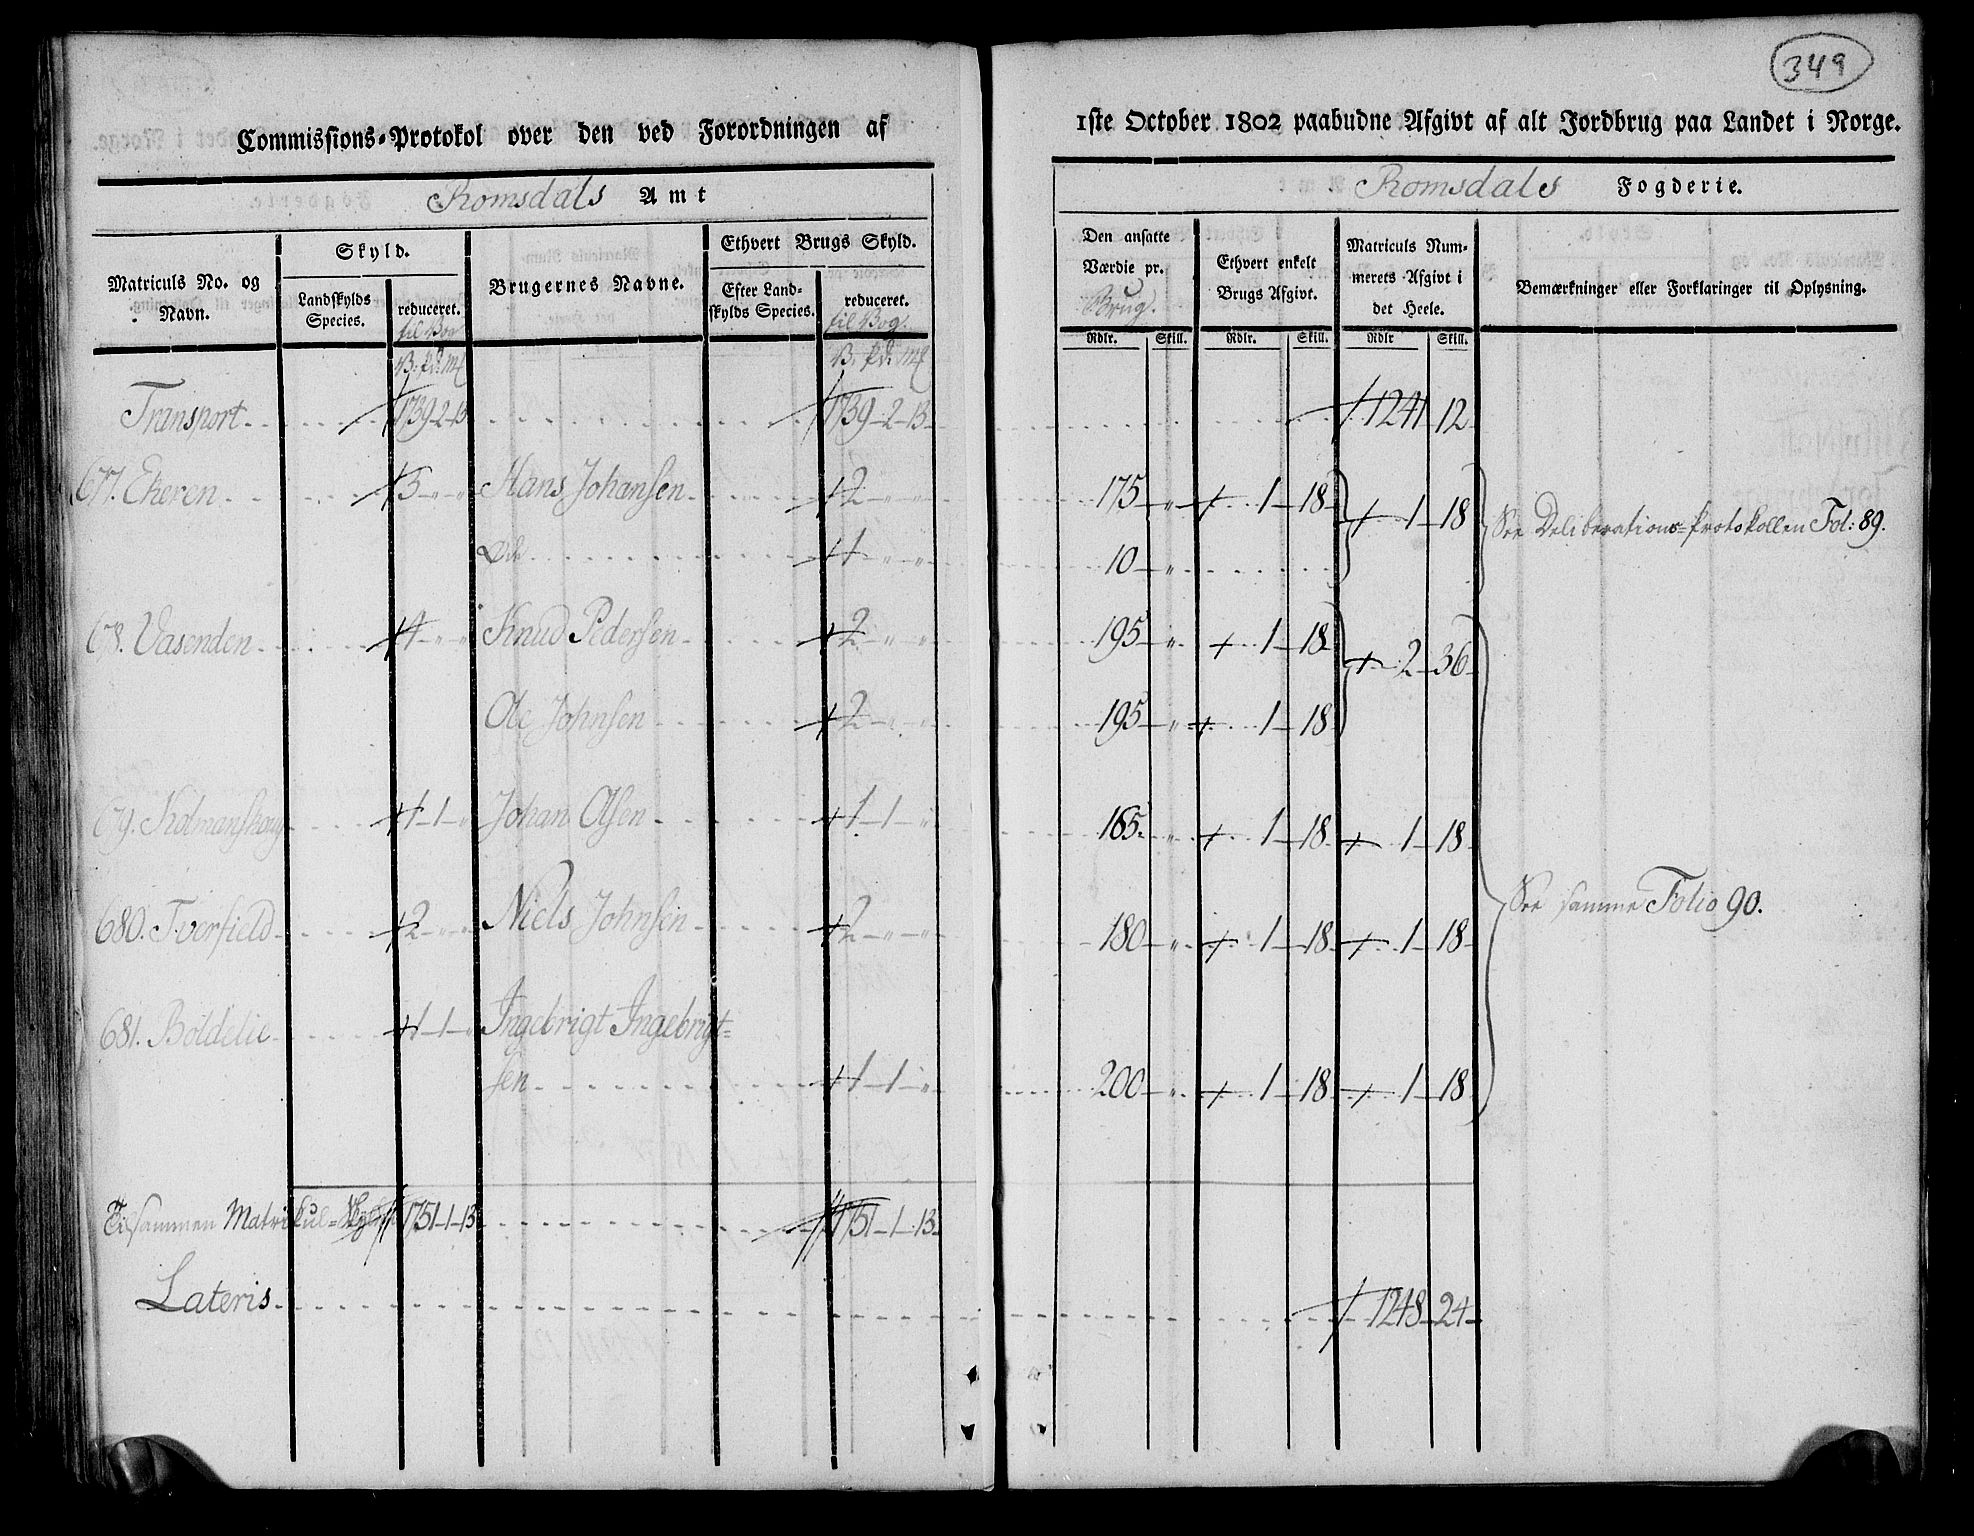 349
Commissions-Protokol over den ved Forordningen af 1ste October 1802 paabudne Afgivt af alt Jordbrug paa Landet i Norge.
Romsdals Amt Romsdals Fogderie.
Matriculs No. og Navn.
Skyld.
Landskylds Species.
reduceret. til Bog
B. pd: mk
Brugernes Navne.
Ethvert Brugs Skyld.
Efter Landskylds Species.
reduceret. til Bog.
B. pd: mk
Den ansatte Værdie pr. Brug.
Rdlr. Skill.
Ethvert enkelt Brugs Afgivt.
Rdlr. Skill.
Matriculs Nummerets Afgivt i det Heele.
Rdlr Skill.
Bemærkninger eller Forklaringer til Oplysning.
Transport 1739-2-13 1739-2-13 1241 12
677. Ekeren 3 Hans Johansen 2 175 1 18 1 18 See Deliberations-Protokollen Fol: 89.
Øde 1 10
678. Vasenden 4 Knud Pedersen 2 195 1 18 2 36
Ole Johnsen 2 195 1 18
679. Kolmanskoug 1 1 Johan Olsen 1 1 165 1 18 1 18
680. Tverfield 2 Niels Johnsen 2 180 1 18 1 18 See samme Folio 90.
681. Boldelie 1 1 Ingebrigt Ingebrigt=
sen 1 1 200 1 18 1 18
Tilsammen Matrikul-Skyld 1751-1-13 1751-1-13
Lateris 1248 24